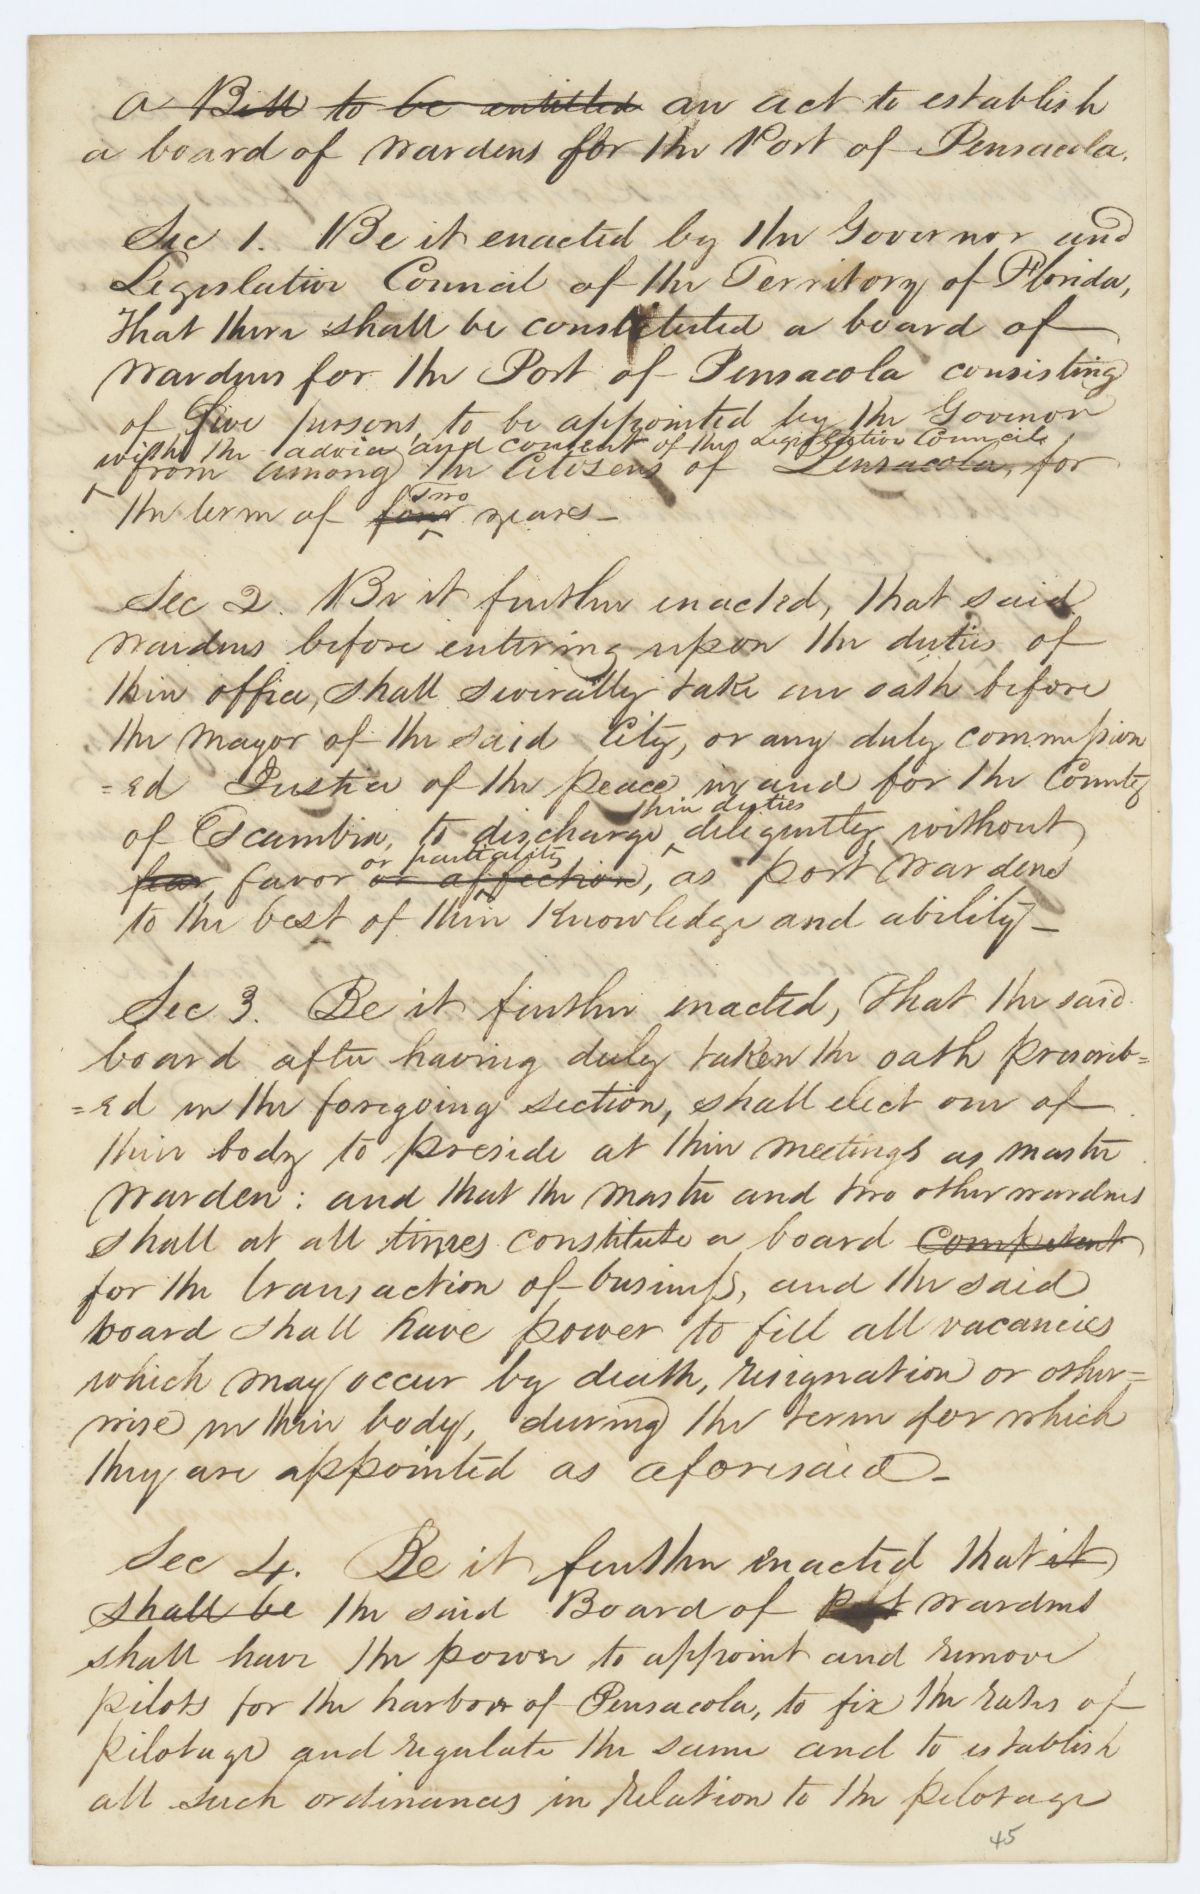 a Bill to be entitled an act to establish
a board of Wardens for the Port of Pensacola.
Sec 1. Be it enacted by the Governor and
Legislative Council of the Territory of Florida,
That there shall be constituted a board of
Wardens for the Port of Pensacola consisting
of five persons, to be appointed by the Govenor
with the advice and consent of the Legislative Council
from among the Citizens of Pensacola, for
Two
the term of four years—
Sec 2. Be it further enacted, that said
wardens before entering upon the duties of
their office, shall severally take an oath before
the Mayor of the said City, or any duly commission
=ed Justice of the peace in and for the County
their duties
of Escambia, to discharge deligently, without
or partiality
fear, favor or affection, as port Wardens
to the best of their Knowledge and ability—
Sec 3. Be it further enacted, That the said
board after having duly taken the oath prescrib=
=ed in the foregoing section, shall elect one of
their body to preside at their meetings as master
Warden: and that the master and two other wardens
shall at all times constitute a board competent
for the transaction of business, and the said
board shall have power to fill all vacancies
which may occur by death, resignation or other=
wise in their body, during the term for which
they are appointed as aforesaid—
Sec 4. Be it further enacted that it
shall be the said Board of port Wardens
shall have the power to appoint and remove
pilots for the harbor of Pensacola, to fix the rates of
pilotage and regulate the same and to establish
all such ordinances in relation to the pilotage
45